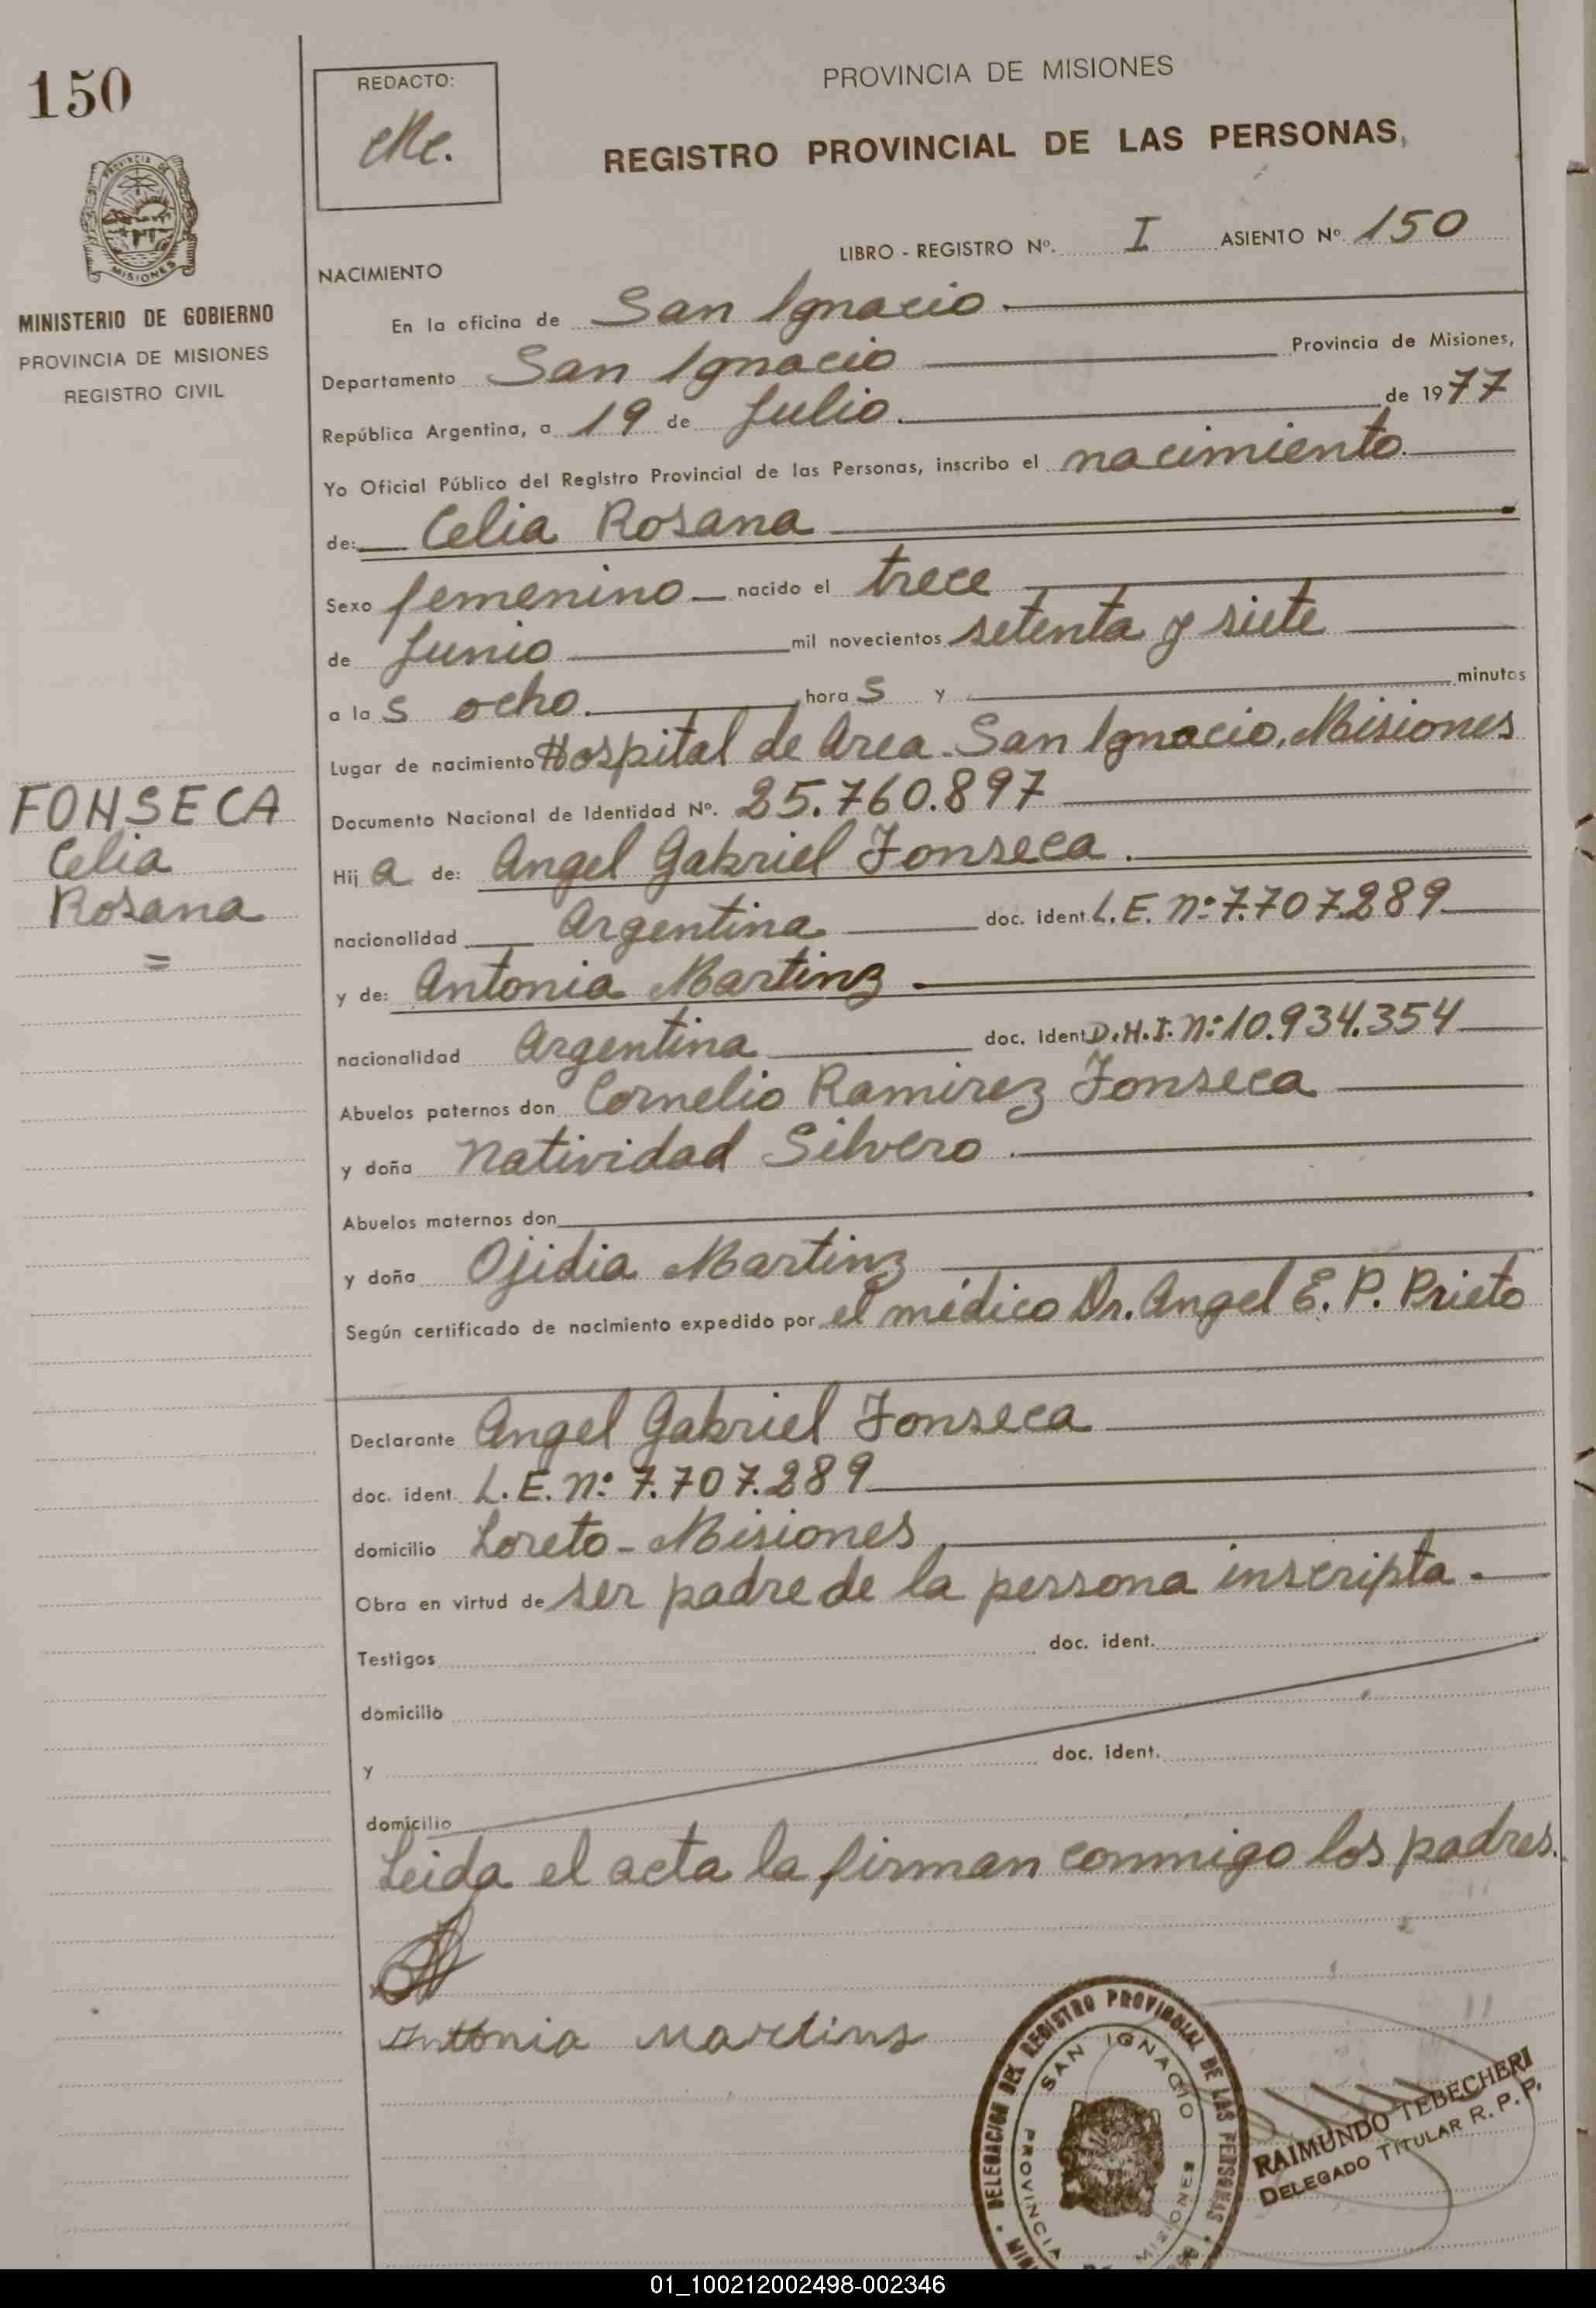 150
REDACTO:
PROVINCIA DE MISIONES
REGISTRO PROVINCIAL DE LAS PERSONAS,
PROVINCIA DE
MISIONES
MINISTERIO DE GOBIERNO
PROVINCIA DE MISIONES
REGISTRO CIVIL
LIBRO - REGISTRO Nº. I ASIENTO Nº 150
NACIMIENTO
En la oficina de San Ignacio
Departamento San Ignacio Provincia de Misiones,
República Argentina, a 19 de Julio. de 1977
Yo Oficial Público del Registro Provincial de las Personas, inscribo el nacimiento.
de: Celia Rosana
Sexo femenino nacido el trece
de Junio mil novecientos setenta y siete
a las ocho. horas y minutos
Lugar de nacimiento Hospital de Area San Ignacio, Misiones
Documento Nacional de Identidad Nº. 25.760.897
FONSECA
Celia
Rosana
=
Hija de: Angel Gabriel Fonseca.
nacionalidad Argentina doc. ident. L.E. Nº 7.707.289
y de: Antonia Martinz
nacionalidad Argentina doc. ident D.N.I. Nº 10.934.354
Abuelos paternos don Cornelio Ramirez Fonseca
y doña Natividad Silvero.
Abuelos maternos don
y doña Ojidia Martinz
Según certificado de nacimiento expedido por el médico Dr. Angel E. P. Prieto
Declarante Angel Gabriel Fonseca
doc. ident. L.E. Nº 7.707.289
domicilio Loreto - Misiones
Obra en virtud de ser padre de la persona inscripta.
Testigos doc. ident.
domicilio
y doc. ident.
domicilio
Leida el acta la firman conmigo los padres.
Antonia Martins
DELEGACION DEL REGISTRO PROVINCIAL DE LAS PERSONAS
SAN IGNACIO
PROVINCIA MISIONES
RAIMUNDO TEBECHERI
DELEGADO TITULAR R. P. P.
01_100212002498-002346